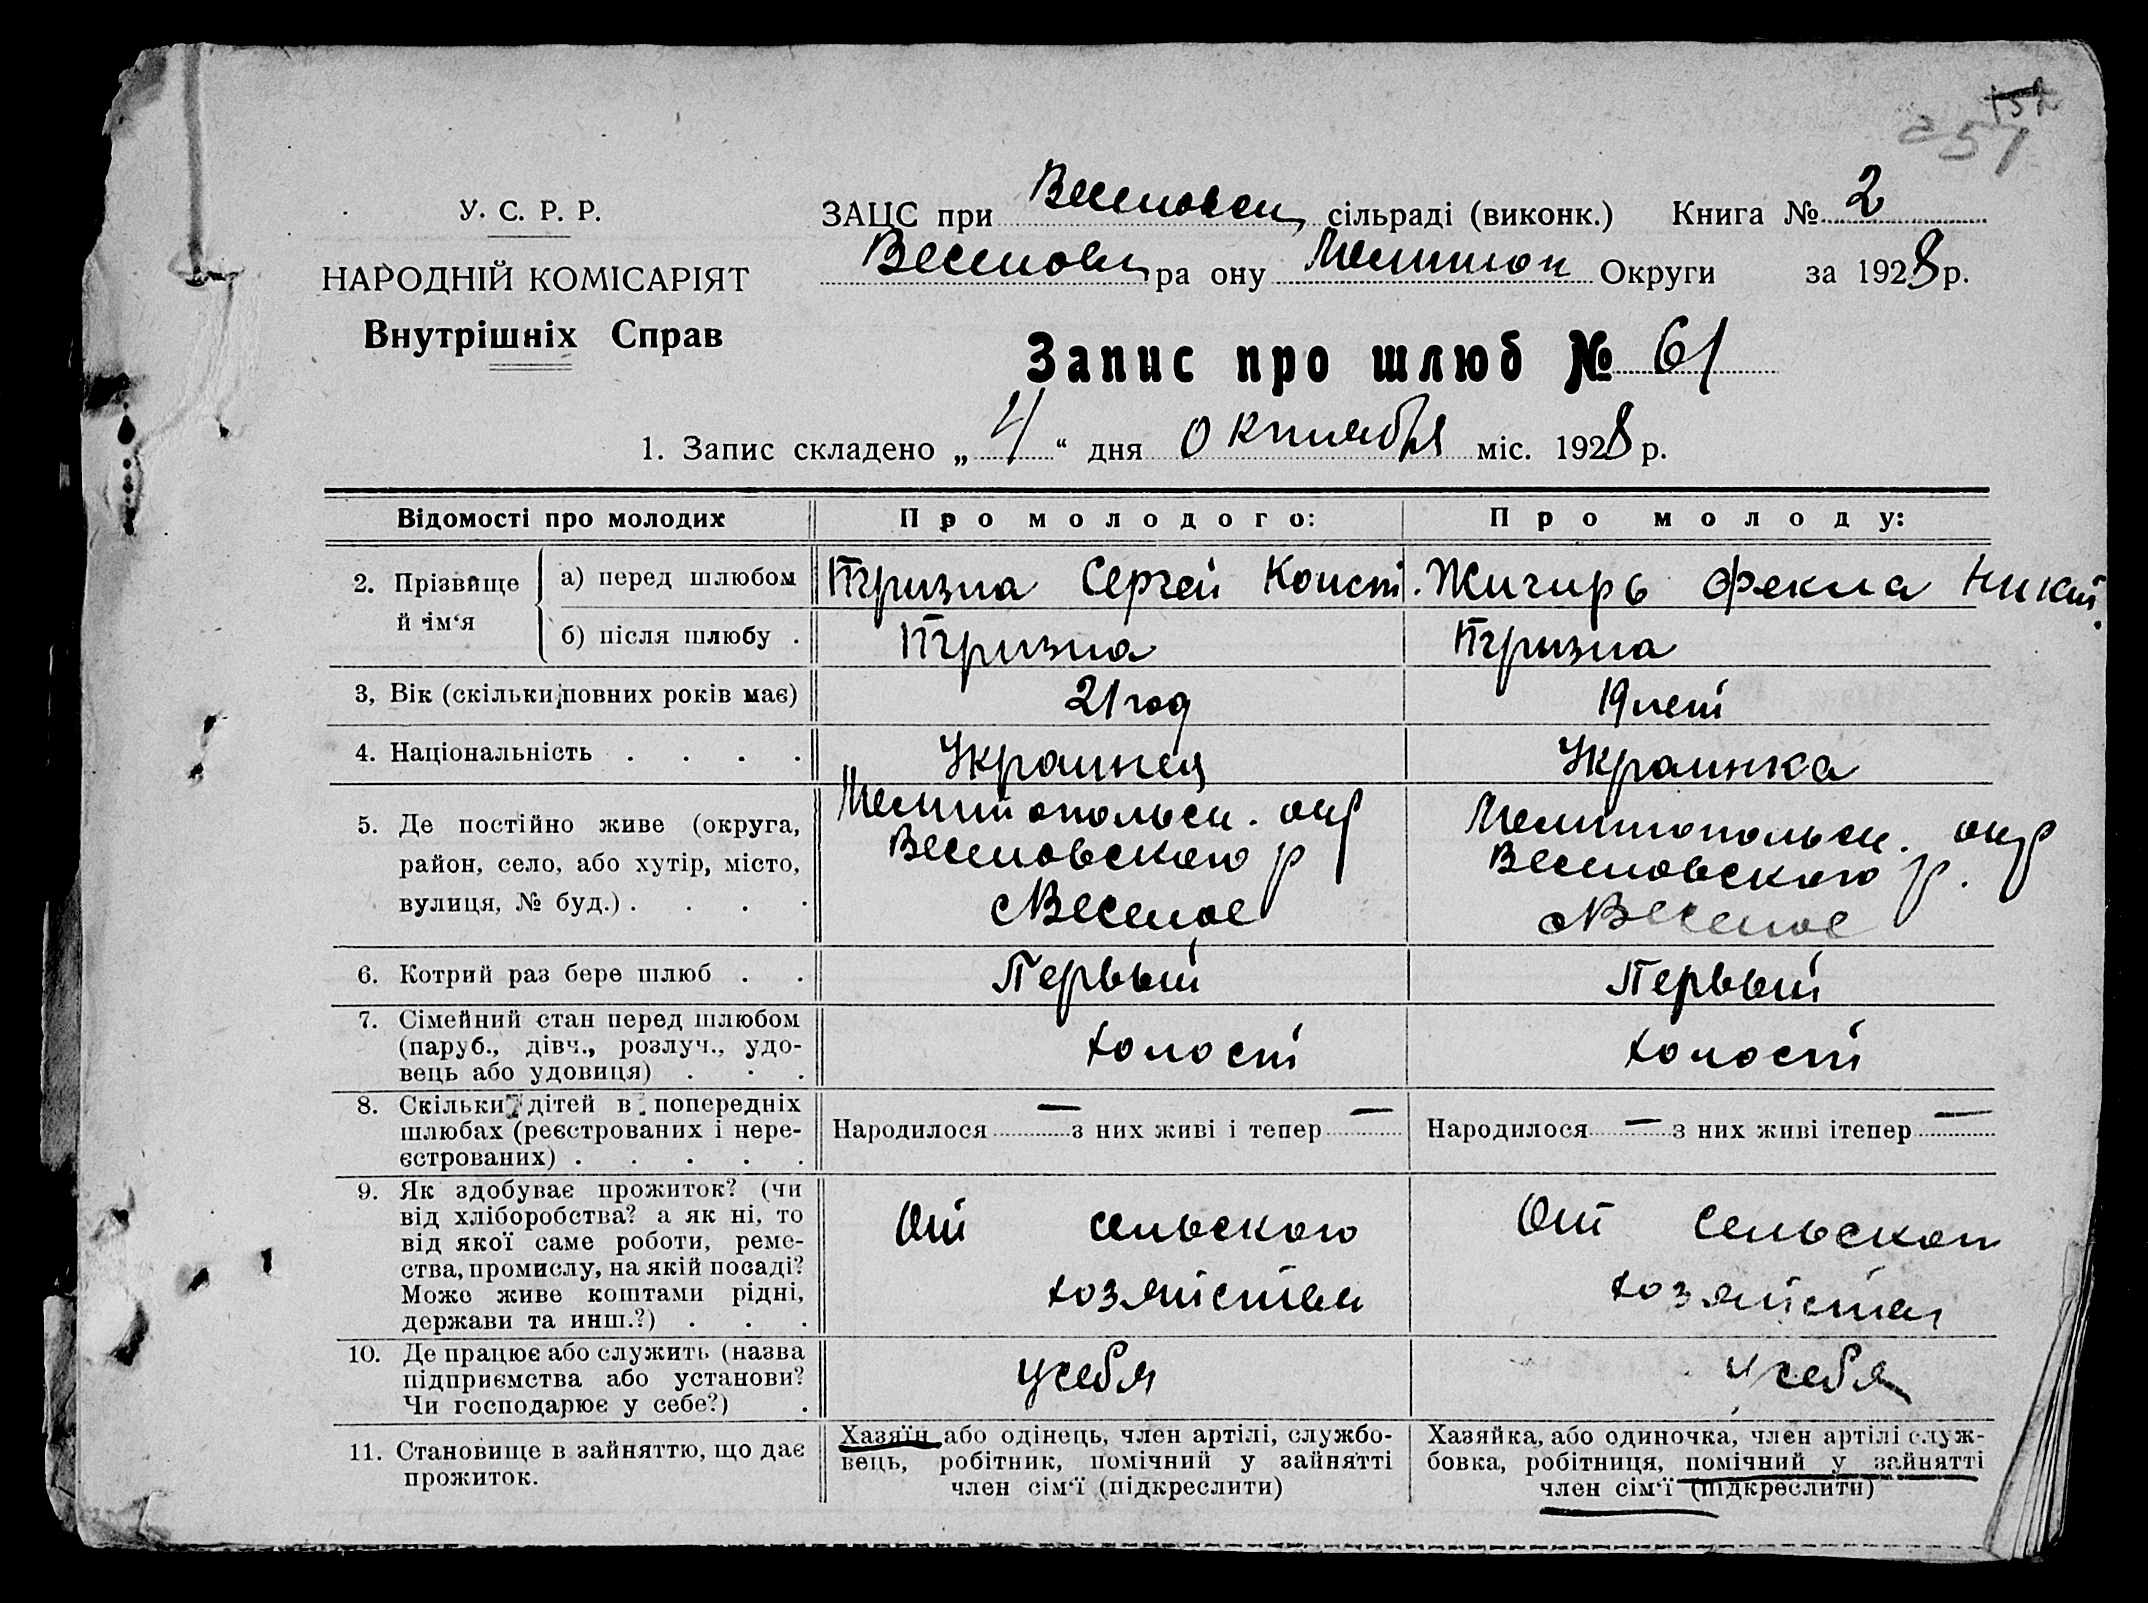 257
У. С. Р. Р.
ЗАЦС при Веселовск сільраді (виконк.) Книга № 2
Веселовск ра ону Мелитоп Округи за 1928 р.
НАРОДНІЙ КОМІСАРІЯТ
Внутрішніх Справ
Запис про шлюб № 61
1. Запис складено „ 4 “ дня Октября міс. 1928 р.
Відомості про молодих Про молодого: Про молоду:
2. Прізвище й ім‘я
а) перед шлюбом Тризна Сергей Конст. Жигирь Фекла Никит.
б) після шлюбу . Тризна Тризна
3, Вік (скільки повних років має) 21 год 19 лет
4. Національність . . . . Украинец Украинка
5. Де постійно живе (округа,
район, село, або хутір, місто,
вулиця, № буд.) . . . .
Мелитопольск. окр
Веселовского р
с Веселое
Мелитопольск. окр
Веселовского р.
с Веселое
6. Котрий раз бере шлюб . . Первый Первый
7. Сімейний стан перед шлюбом
(паруб., дівч., розлуч., удо-
вець або удовиця) . . .
холост холост
8. Скільки дітей в попередніх
шлюбах (реєстрованих і нере-
єстрованих) . . . . .
Народилося — з них живі і тепер —
Народилося — з них живі ітепер —
9. Як здобуває прожиток? (чи
від хліборобства? а як ні, то
від якої саме роботи, реме-
ства, промислу, на якій посаді?
Може живе коштами рідні,
держави та инш.?) . . .
От сельского
хозяйства
От сельского
хозяйства
10. Де працює або служить (назва
підприємства або установи?
Чи господарює у себе?) .
у себя у себя
11. Становище в зайняттю, що дає
прожиток.
Хазяїн або одінець, член артілі, службо-
вець, робітник, помічний у зайнятті
член сім‘ї (підкреслити)
Хазяйка, або одиночка, член артілі служ-
бовка, робітниця, помічний у зайнятті
член сім‘ї (підкреслити)